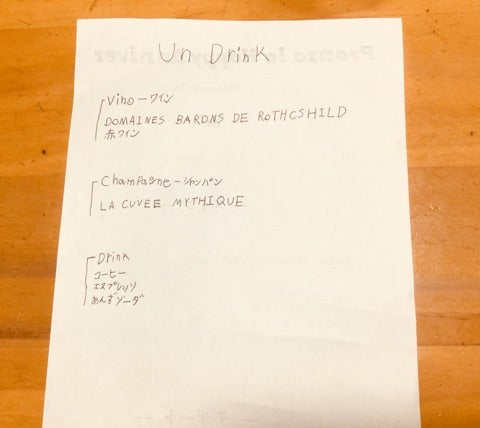 Un Drink
Vino－ワイン
DOMAINES BARONS DE ROTHCSHILD
赤ワイン
Champagne－シャンパン
LA CUVEE MYTHIQUE
Drink
コーヒー
エスプレッソ
あんずソーダ